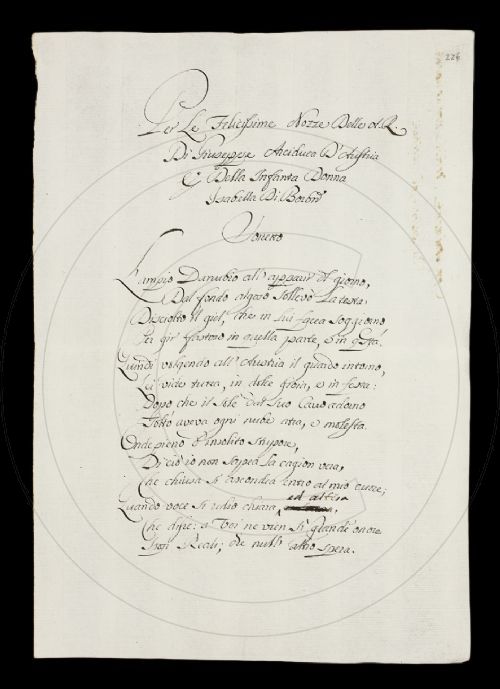 226
Per Le Felicissime Nozze Delle A. R.
Di Giuseppe Arciduca D'Austria
E Della Infanta Donna
Isabella Di Borbon
Sonetto
L'ampio Danubio all' apparir del giorno,
Dal fondo algoso sollevò la testa
Disciolto il giel, che in lui facea soggiorno
Per gir fastoso in quella parte, e in questa.
Quindi volgendo all' Austria il guardo intorno,
La vide tutta, in dolce gioia, e in festa:
Dopo che il Sole dal suo Carro adorno
Tolto aveva ogni nube atra, e molesta.
Onde pieno d'insolito stupore,
Di ciò io non sapea la cagion vera,
Che chiusa si ascondea entro al mio core;
Quando voce si udio chiara, ed altera
Che disse: a Voi ne vien sì grande onore
Sposi Reali; che null' altro spera.